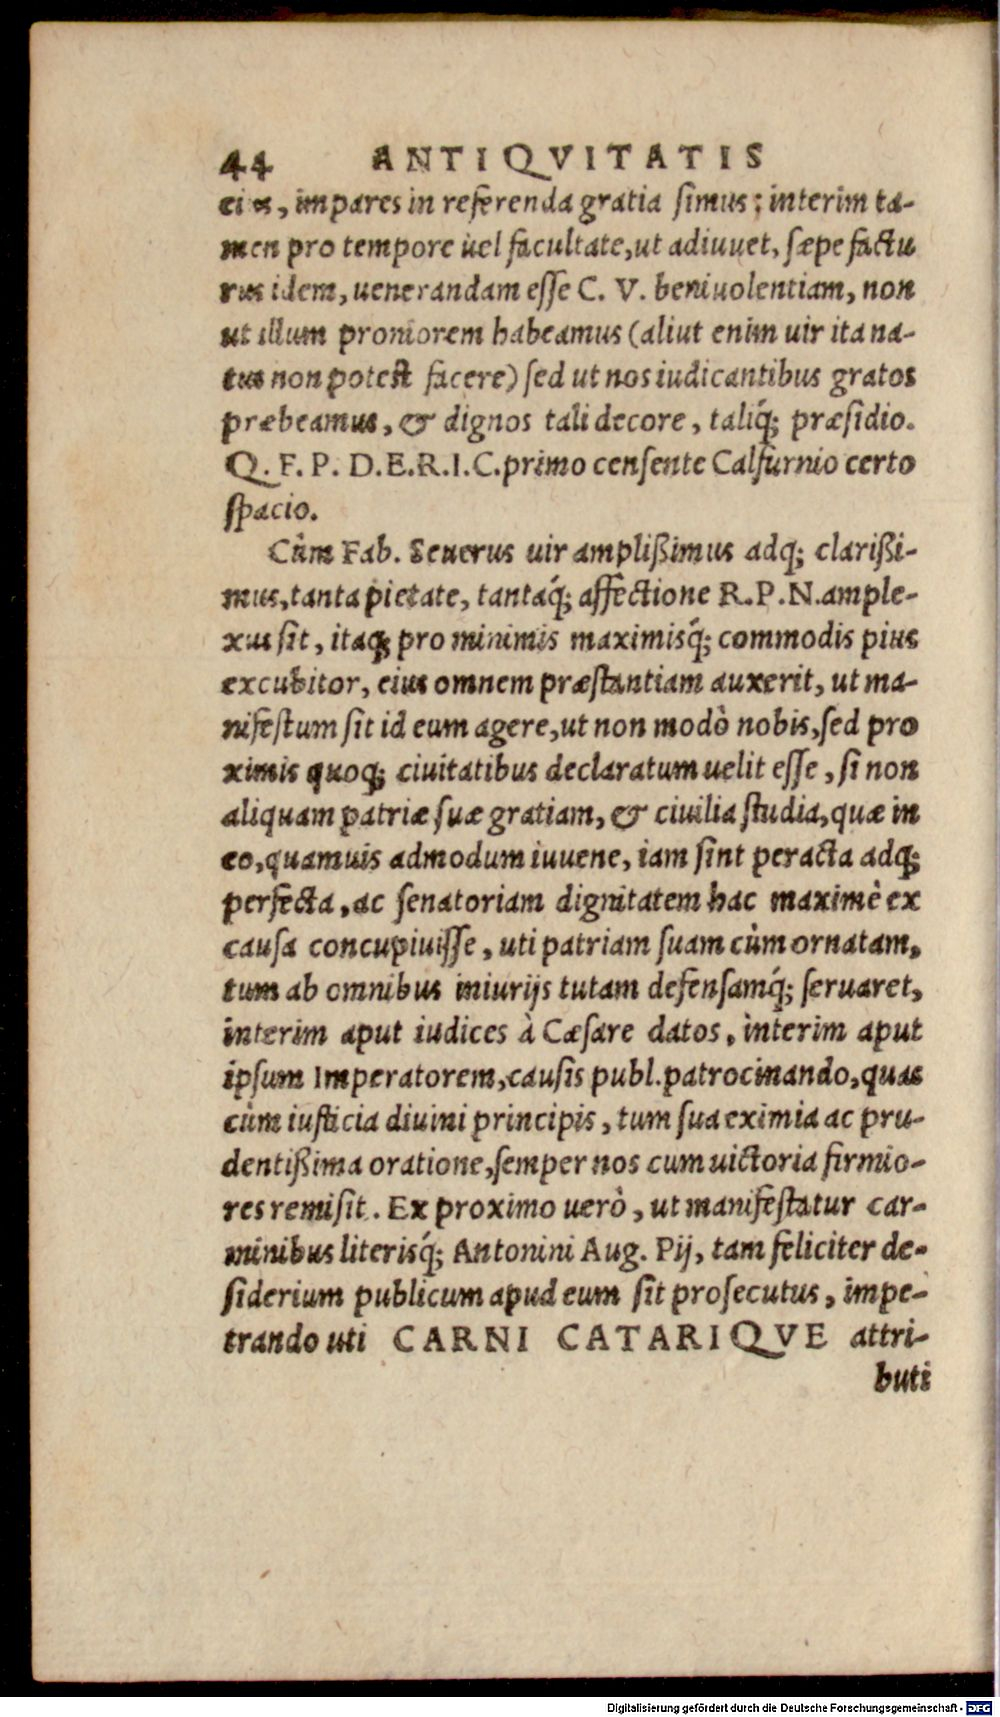 44 ANTIQVITATIS
eius, impares in referenda gratia simus: interim ta-
men pro tempore uel facultate, ut adiuuet, sæpe factu
rus idem, uenerandam esse C. V. beniuolentiam, non
ut illum proniorem habeamus (aliut enim uir ita na-
tus non potest facere) sed ut nos iudicantibus gratos
præbeamus, & dignos tali decore, taliq́; præsidio.
Q. F. P. D. E. R. I. C. primo censente Calfurnio certo
spacio.
Cùm Fab. Seuerus uir amplißimus adq; clarißi-
mus, tanta pietate, tantaq́; affectione R. P. N. ample-
xus sit, itaq; pro minimis maximisq́; commodis pius
excubitor, eius omnem præstantiam auxerit, ut ma-
nifestum sit id eum agere, ut non modò nobis, sed pro
ximis quoq; ciuitatibus declaratum uelit esse, si non
aliquam patriæ suæ gratiam, & ciuilia studia, quæ in
eo, quamuis admodum iuuene, iam sint peracta adq;
perfecta, ac senatoriam dignitatem hac maximè ex
causa concupiuisse, uti patriam suam cùm ornatam,
tum ab omnibus iniurijs tutam defensamq́; seruaret,
interim aput iudices à Cæsare datos, interim aput
ipsum Imperatorem, causis publ. patrocinando, quas
cùm iusticia diuini principis, tum sua eximia ac pru-
dentißima oratione, semper nos cum uictoria firmio-
res remisit. Ex proximo uerò, ut manifestatur car-
minibus literisq́; Antonini Aug. Pij, tam feliciter de-
siderium publicum apud eum sit prosecutus, impe-
trando uti CARNI CATARIQVE attri-
buti
Digitalisierung gefördert durch die Deutsche Forschungsgemeinschaft - DFG